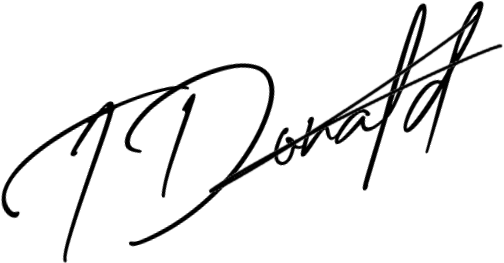 T Donald